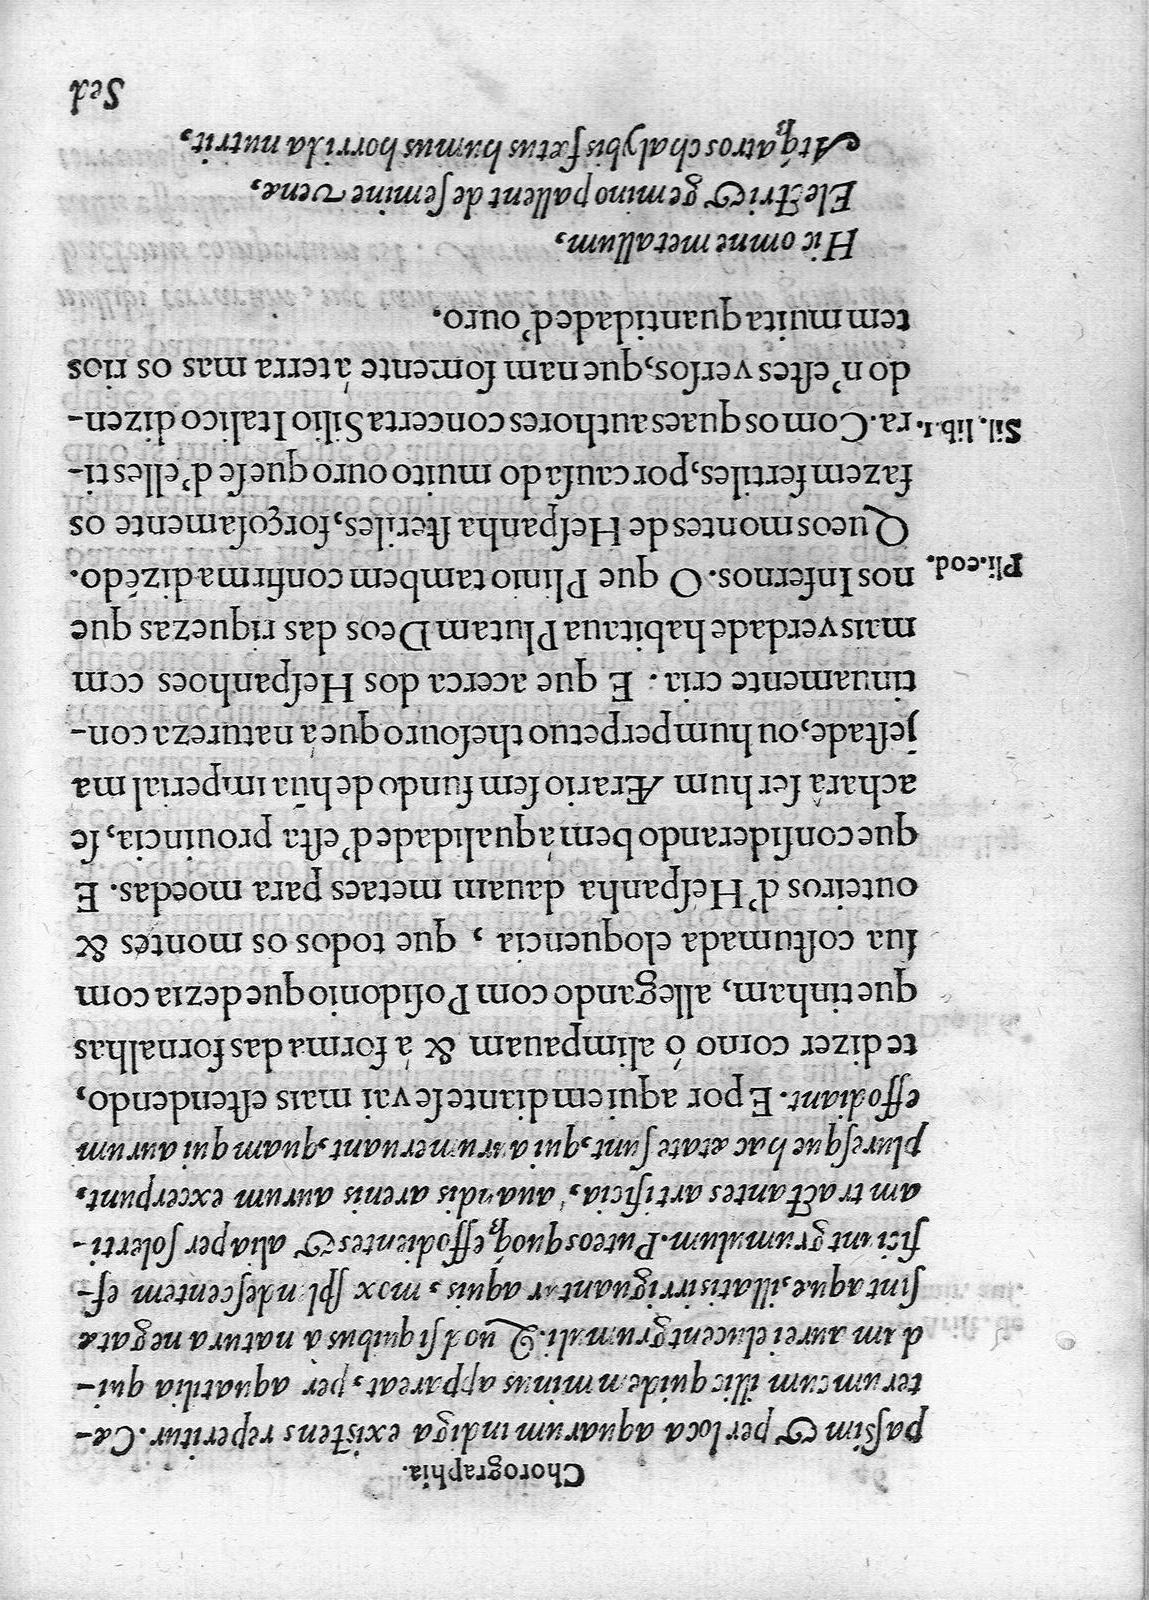 Chorographia.
passim & per loca aquarum indiga existens reperitur. Cæ-
terum cum illic quidem minus appareat, per aquatilia qui-
dam aurei elucent grumuli. Quod si quibus à natura negatæ
sint aquæ, illatis irriguantur aquis, mox splendescentem ef-
ficiunt grumulum. Puteos quoq; effodientes & alia per solerti-
am tractantes artificia, auandis arenis aurum excerpunt,
pluresque hac ætate sunt, qui aurum eruant, quam qui aurum
effodiant. E por aqui em diante se vai mais estendendo,
te dizer como ó alimpauam & á forma das fornalhas
que tinham, allegando com Posidonio que dezia com
sua costumada eloquencia, que todos os montes &
outeiros d'Hespanha dauam metaes para moedas. E
que considerando bem á qualidade d'esta prouincia, se
achará ser hum Ærario sem fundo de hũa imperial ma
jestade, ou hum perpetuo thesouro que á natureza con-
tinuamente cria. E que acerca dos Hespanhoes com
mais verdade habitaua Plutam Deos das riquezas que
nos Infernos. O que Plinio tambem confirma dizẽdo. Pli. eod.
Que os montes de Hespanha steriles, forçosamente os
fazem fertiles, por causa do muito ouro que se d'elles ti-
ra. Com os quaes authores concerta Silio Italico dizen- Sil. lib. 1.
do n'estes versos, que nam somente á terra mas os rios
tem muita quantidade d'ouro.
Hic omne metallum,
Electri & gemino pallent de semine venæ,
Atq; atros chalybis fœtus humus horrida nutrit,
Sed